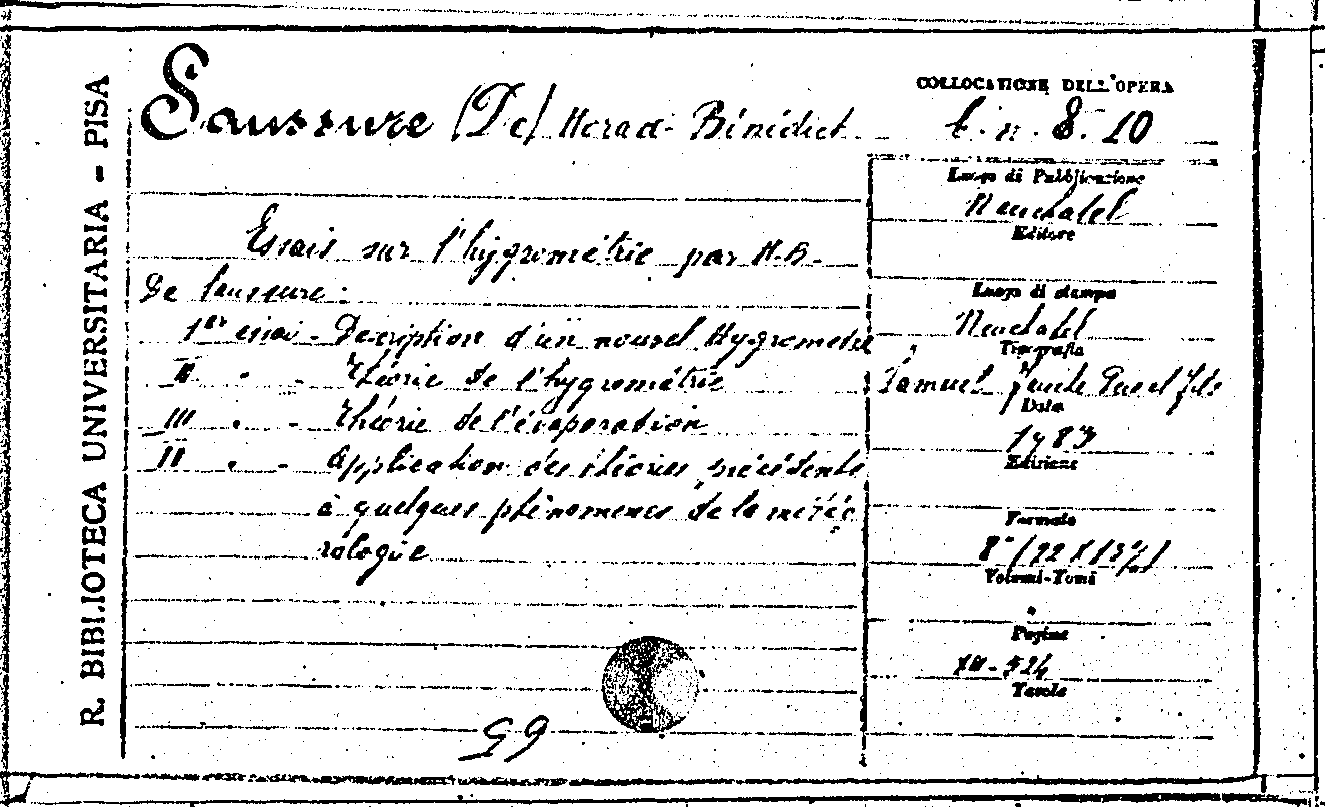 R. BIBLIOTECA UNIVERSITARIA - PISA
Saussure (De) Horace Bénédict
Essais sur l'hygrométrie par H.B.
De Saussure:
1er essai - Description d'un nouvel Hygrometre
II " - Théorie de l'hygrométrie
III " - Théorie de l'évaporation
application des théories précédente
à quelques phénomenes de la météo
rologie
99
COLLOCATIONE DELL'OPERA
C. n. 8. 10
Luogo di Pubblicazione
Neuchatel
Editore
Luogo di stampa
Neuchatel
Tipografia
Samuel Fauche Pere et fils
Data
1783
Edizione
Formato
8°
Volumi-Tomi
Pagine
524
Tavole